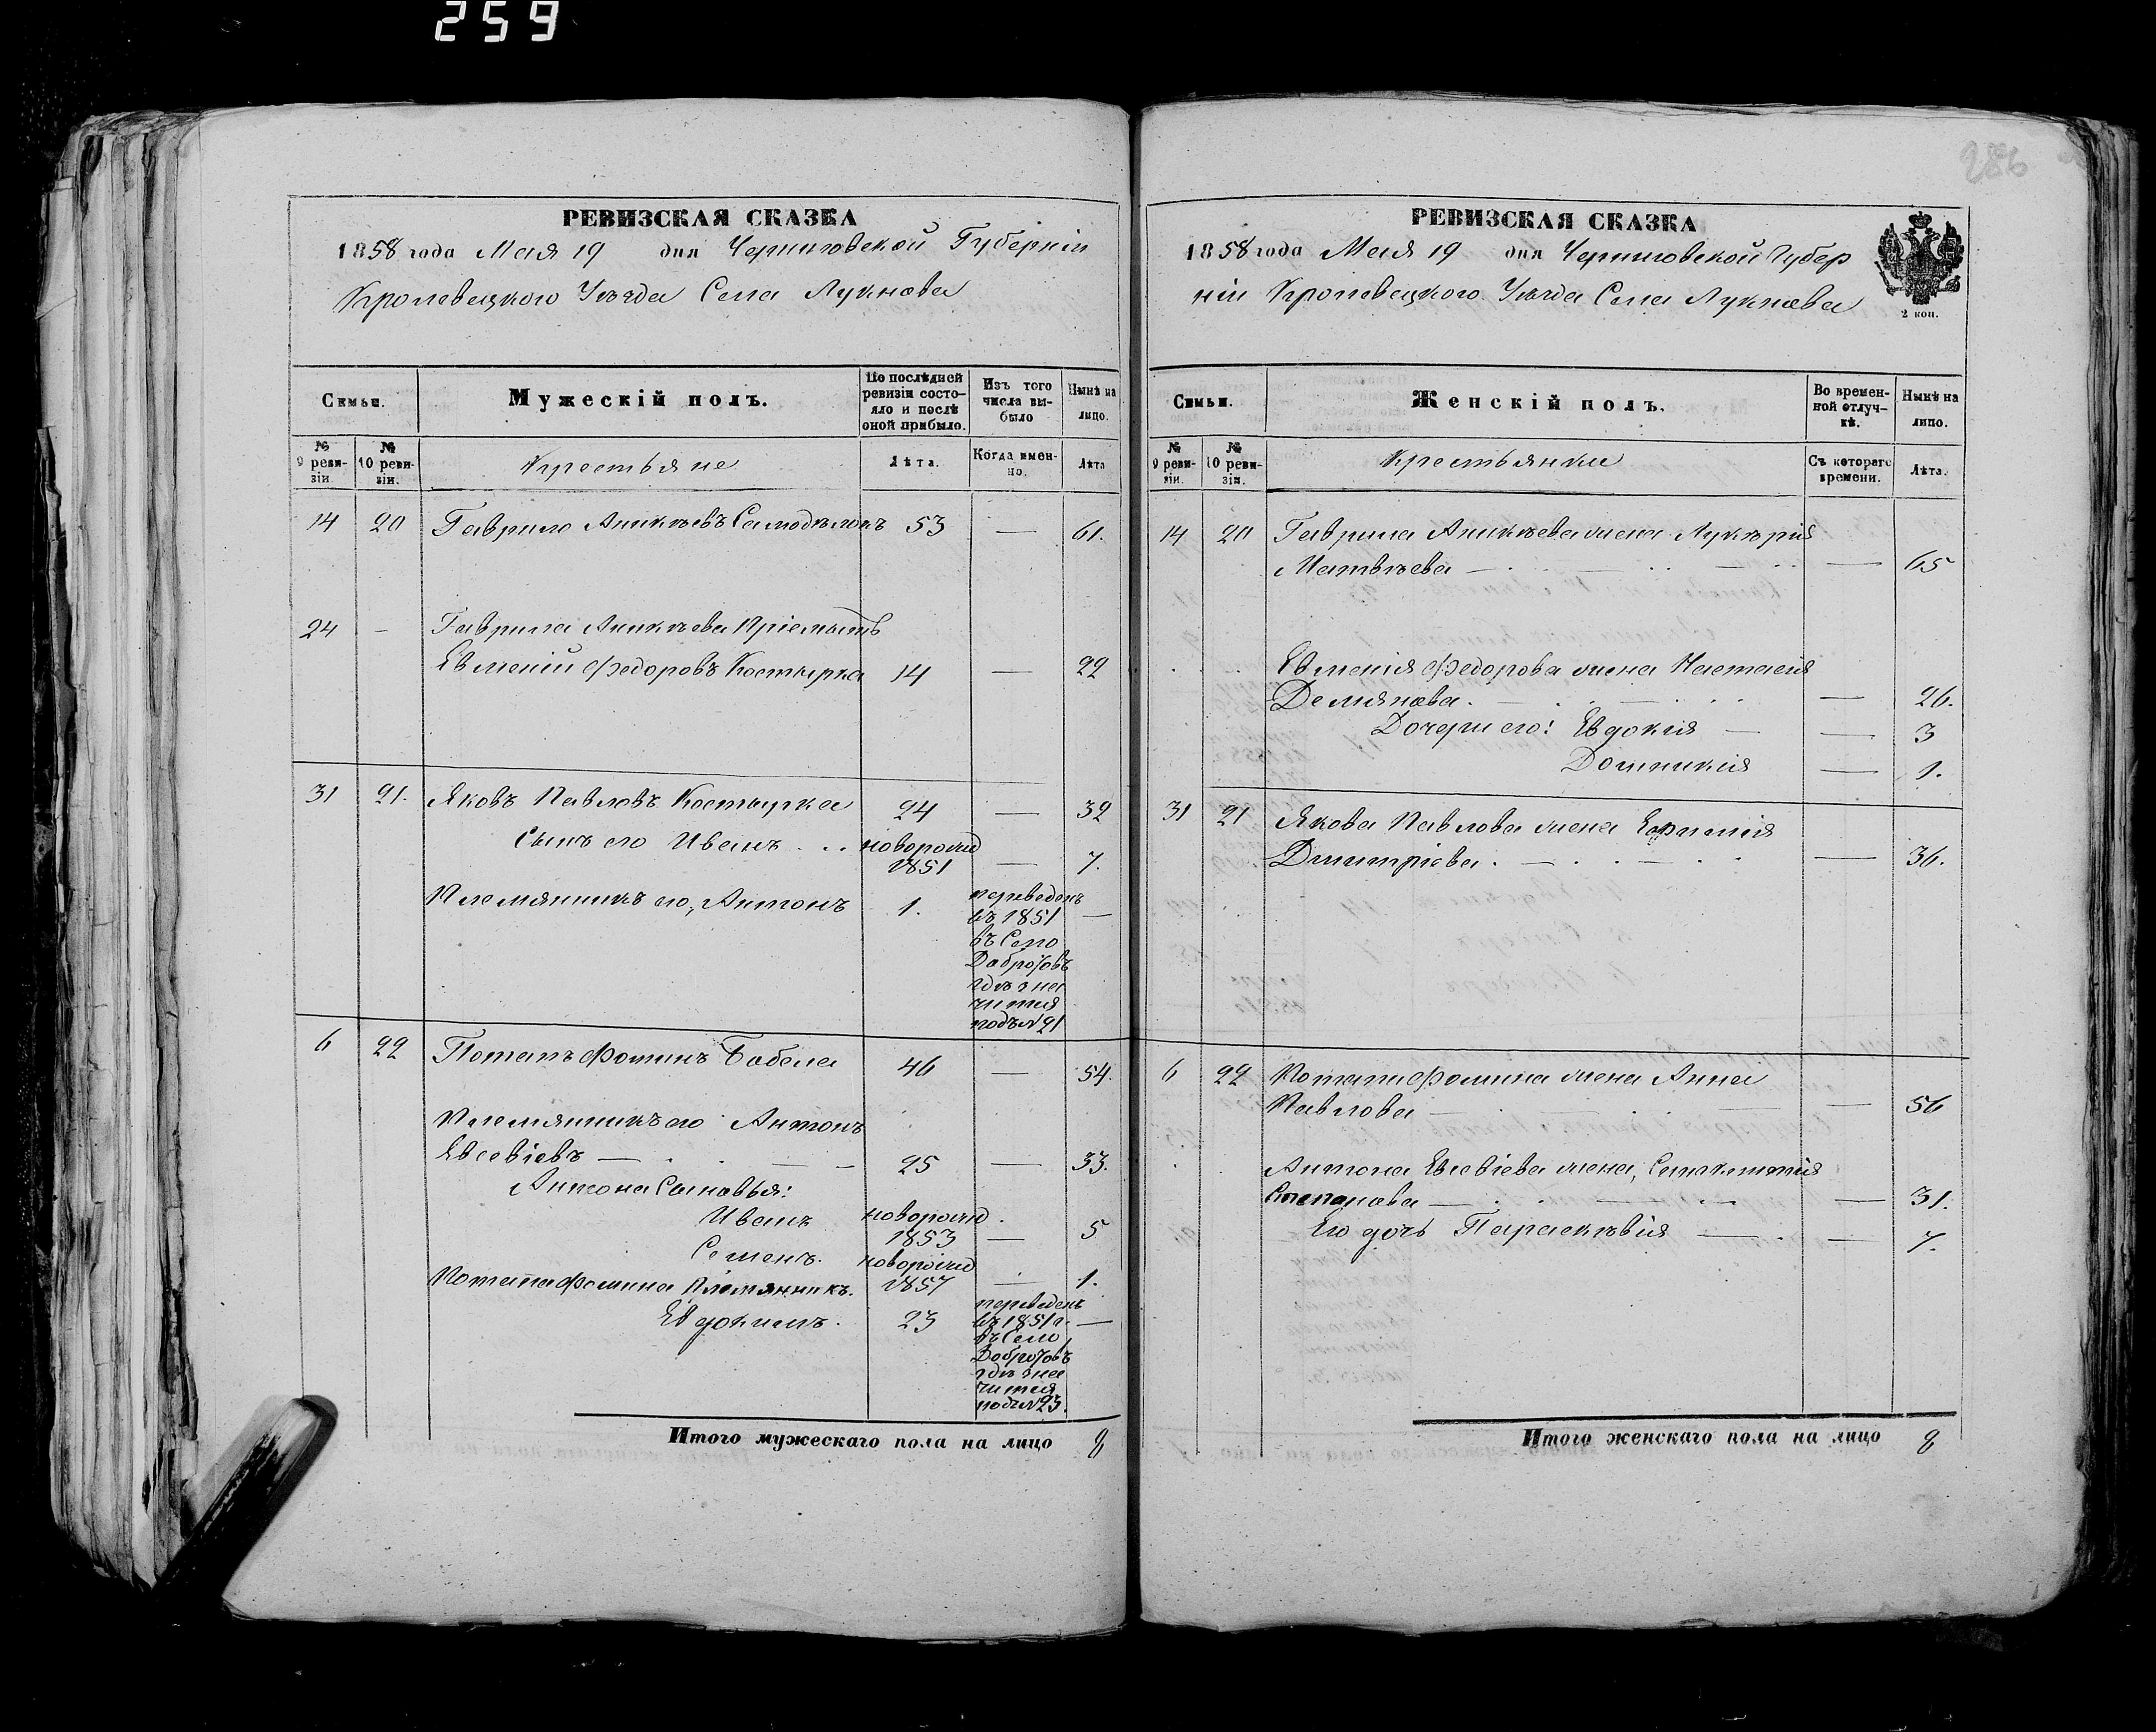 259
286
РЕВИЗСКАЯ СКАЗКА
1858 года Мая 19 дня Черниговской Губерніи
Кролевецкого Уѣзда Села Лукнова
Семьи.
Мужескій полъ.
По послѣдней ревизіи состо-
яло и послѣ
оной прибыло.
Изъ того
числа вы-
было
Нынѣ на
лицо.
№ 9 реви-
зіи.
№ 10 реви-
зіи.
Крестьяне
Лѣта.
Когда имен-
но.
Лѣта
14 20 Гаврило Аникѣевъ Самодѣлокъ 53 — 61.
24 — Гаврила Аникѣева Пріемышъ
Евменій Федоровъ Костырка 14 — 22
31 21. Яковъ Павловъ Костырка 24 — 32
Сынъ его Иванъ . . новорожд
1851 — 7.
Племянникъ его, Антонъ 1. переведенъ
въ 1851 —
въ Село
Добротовъ
гдѣ зна
чится
подъ №21
6 22 Потапъ Фоминъ Бабела 46 — 54.
Племянникъ его Антонъ
Евсевіевъ — 25 — 33.
Антона Сыновья:
Иванъ новорожд.
1853 — 5
Семенъ. новорожд
1857 — 1.
Потапа Фомина племянникъ.
Евдокимъ. 23 переведенъ
въ 1851 г. —
въ Село
Добротовъ
гдѣ зна
чится
подъ №23.
Итого мужескаго пола на лицо 8
РЕВИЗСКАЯ СКАЗКА
1858 года Мая 19 дня Черниговской Губер
ніи Кролевецкого Уѣзда Села Лукнова
2 коп.
Семьи.
Женскій полъ.
Во времен-
ной отлуч-
кѣ.
Нынѣ на
лицо.
№ 9 реви-
зіи.
№ 10 реви-
зіи.
Крестьянки
Съ котораго
времени.
Лѣта.
14 20 Гаврила Аникѣева жена Лукѣрія
Матвѣева — — 65
Евменія Федорова жена Настасія
Демянова. — — 26.
Дочери его: Евдокія — — 3
Домникія — 1.
31 21 Якова Павлова жена Евфимія
Дмитріева. — — 36.
6 22 Потапа Фомина жена Анна
Павлова — — 56
Антона Евсевіева жена,
Степанова — — 31.
Его дочь Параскѣвія — — 7.
Итого женскаго пола на лицо 8